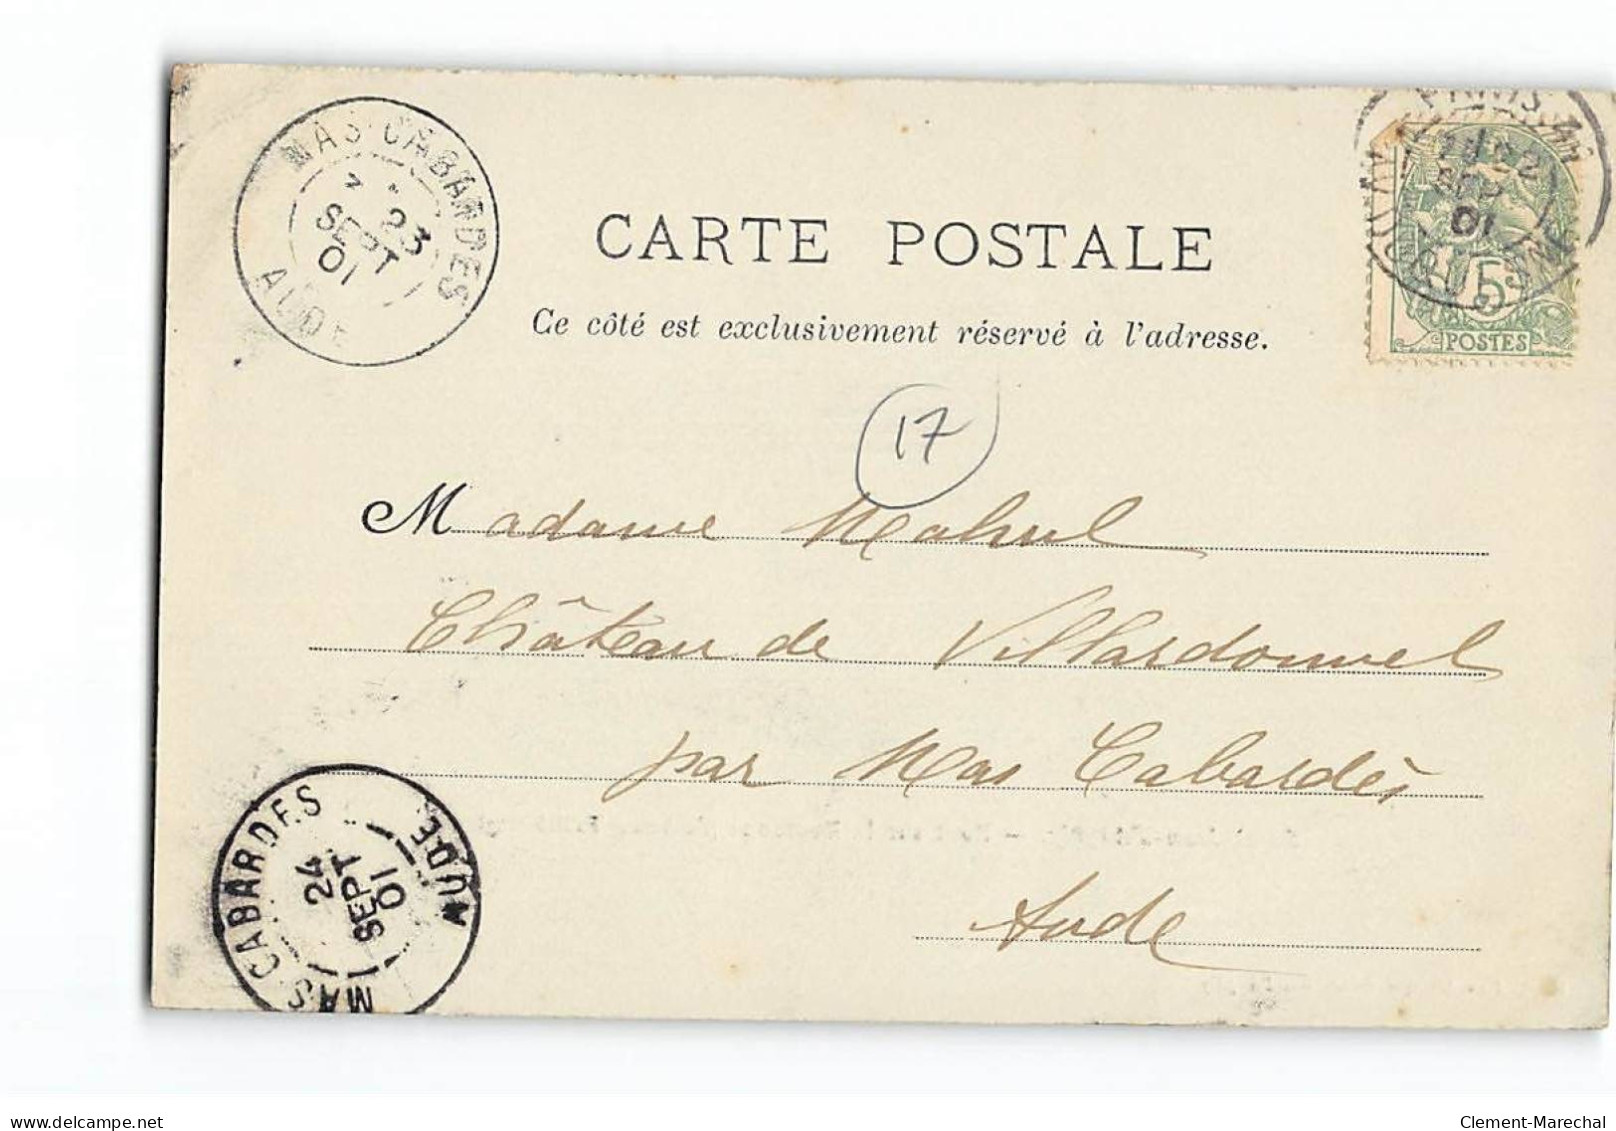 MAS CABARDES
23
SEPT
01
AUDE
01
5
POSTES
CARTE POSTALE
Ce côté est exclusivement réservé à l'adresse.
17
Madame Mahul
Château de Villardonnel
par Mas Cabardès
Aude
MAS CABARDES
24
SEPT
01
AUDE
www.delcampe.net
Clement-Marechal